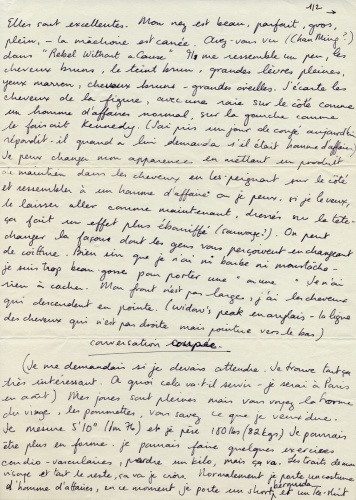 1/2 →
Elles sont excellentes. Mon nez est beau, parfait, gros,
plein, - la mâchoire est carrée. Avez-vous vu (Chan Ming?)
dans "Rebel Without a Cause" me ressemble un peu, les
cheveux bruns, le teint brun, grandes lèvres pleines,
yeux marron, cheveux bruns - grandes oreilles. J'écarte les
cheveux de la figure, avec une raie sur le côté comme
un homme d'affaires normal, sur la gauche comme
le faisait Kennedy. (J'ai pris un jour de congé aujourd'hui
répondit-il quand on lui demanda s'il était homme d'affaires)
Je peux changer mon apparence en mettant un produit
de maintien dans les cheveux en les peignant sur le côté
et ressembler à un homme d'affaires - ou je peux, si je le veux,
le laisser aller comme maintenant, dressés sur la tête -
ça fait un effet plus ébouriffé (sauvage?). On peut
changer la façon dont les gens vous perçoivent en changeant
de coiffure. Bien sûr que je n'ai ni barbe ni moustache -
je suis trop beau gosse pour porter une Je n'ai
rien à cacher. Mon front n'est pas large, j'ai les cheveux
qui descendent en pointe. (widow's peak en anglais - la ligne
des cheveux qui n'est pas droite mais pointue vers le bas)
conversation coupée.
(Je me demandais si je devais attendre. Je trouve tout ça
très intéressant. A quoi cela va-t-il servir - je serai à Paris
en août) Mes joues sont pleines mais vous voyez la forme
du visage, les pommettes, vous savez ce que je veux dire.
Je mesure 5'10" (1m 76) et je pèse 180 lbs (82 kgs) Je pourrais
être plus en forme. je pourrais faire quelques exercices
cardio-vasculaires, perdre un kilo, mais ça va. Les traits de mon
visage et tout le reste, ça va je crois. Normalement je porte un costume
d'homme d'affaires, en ce moment je porte un short et un tee-shirt